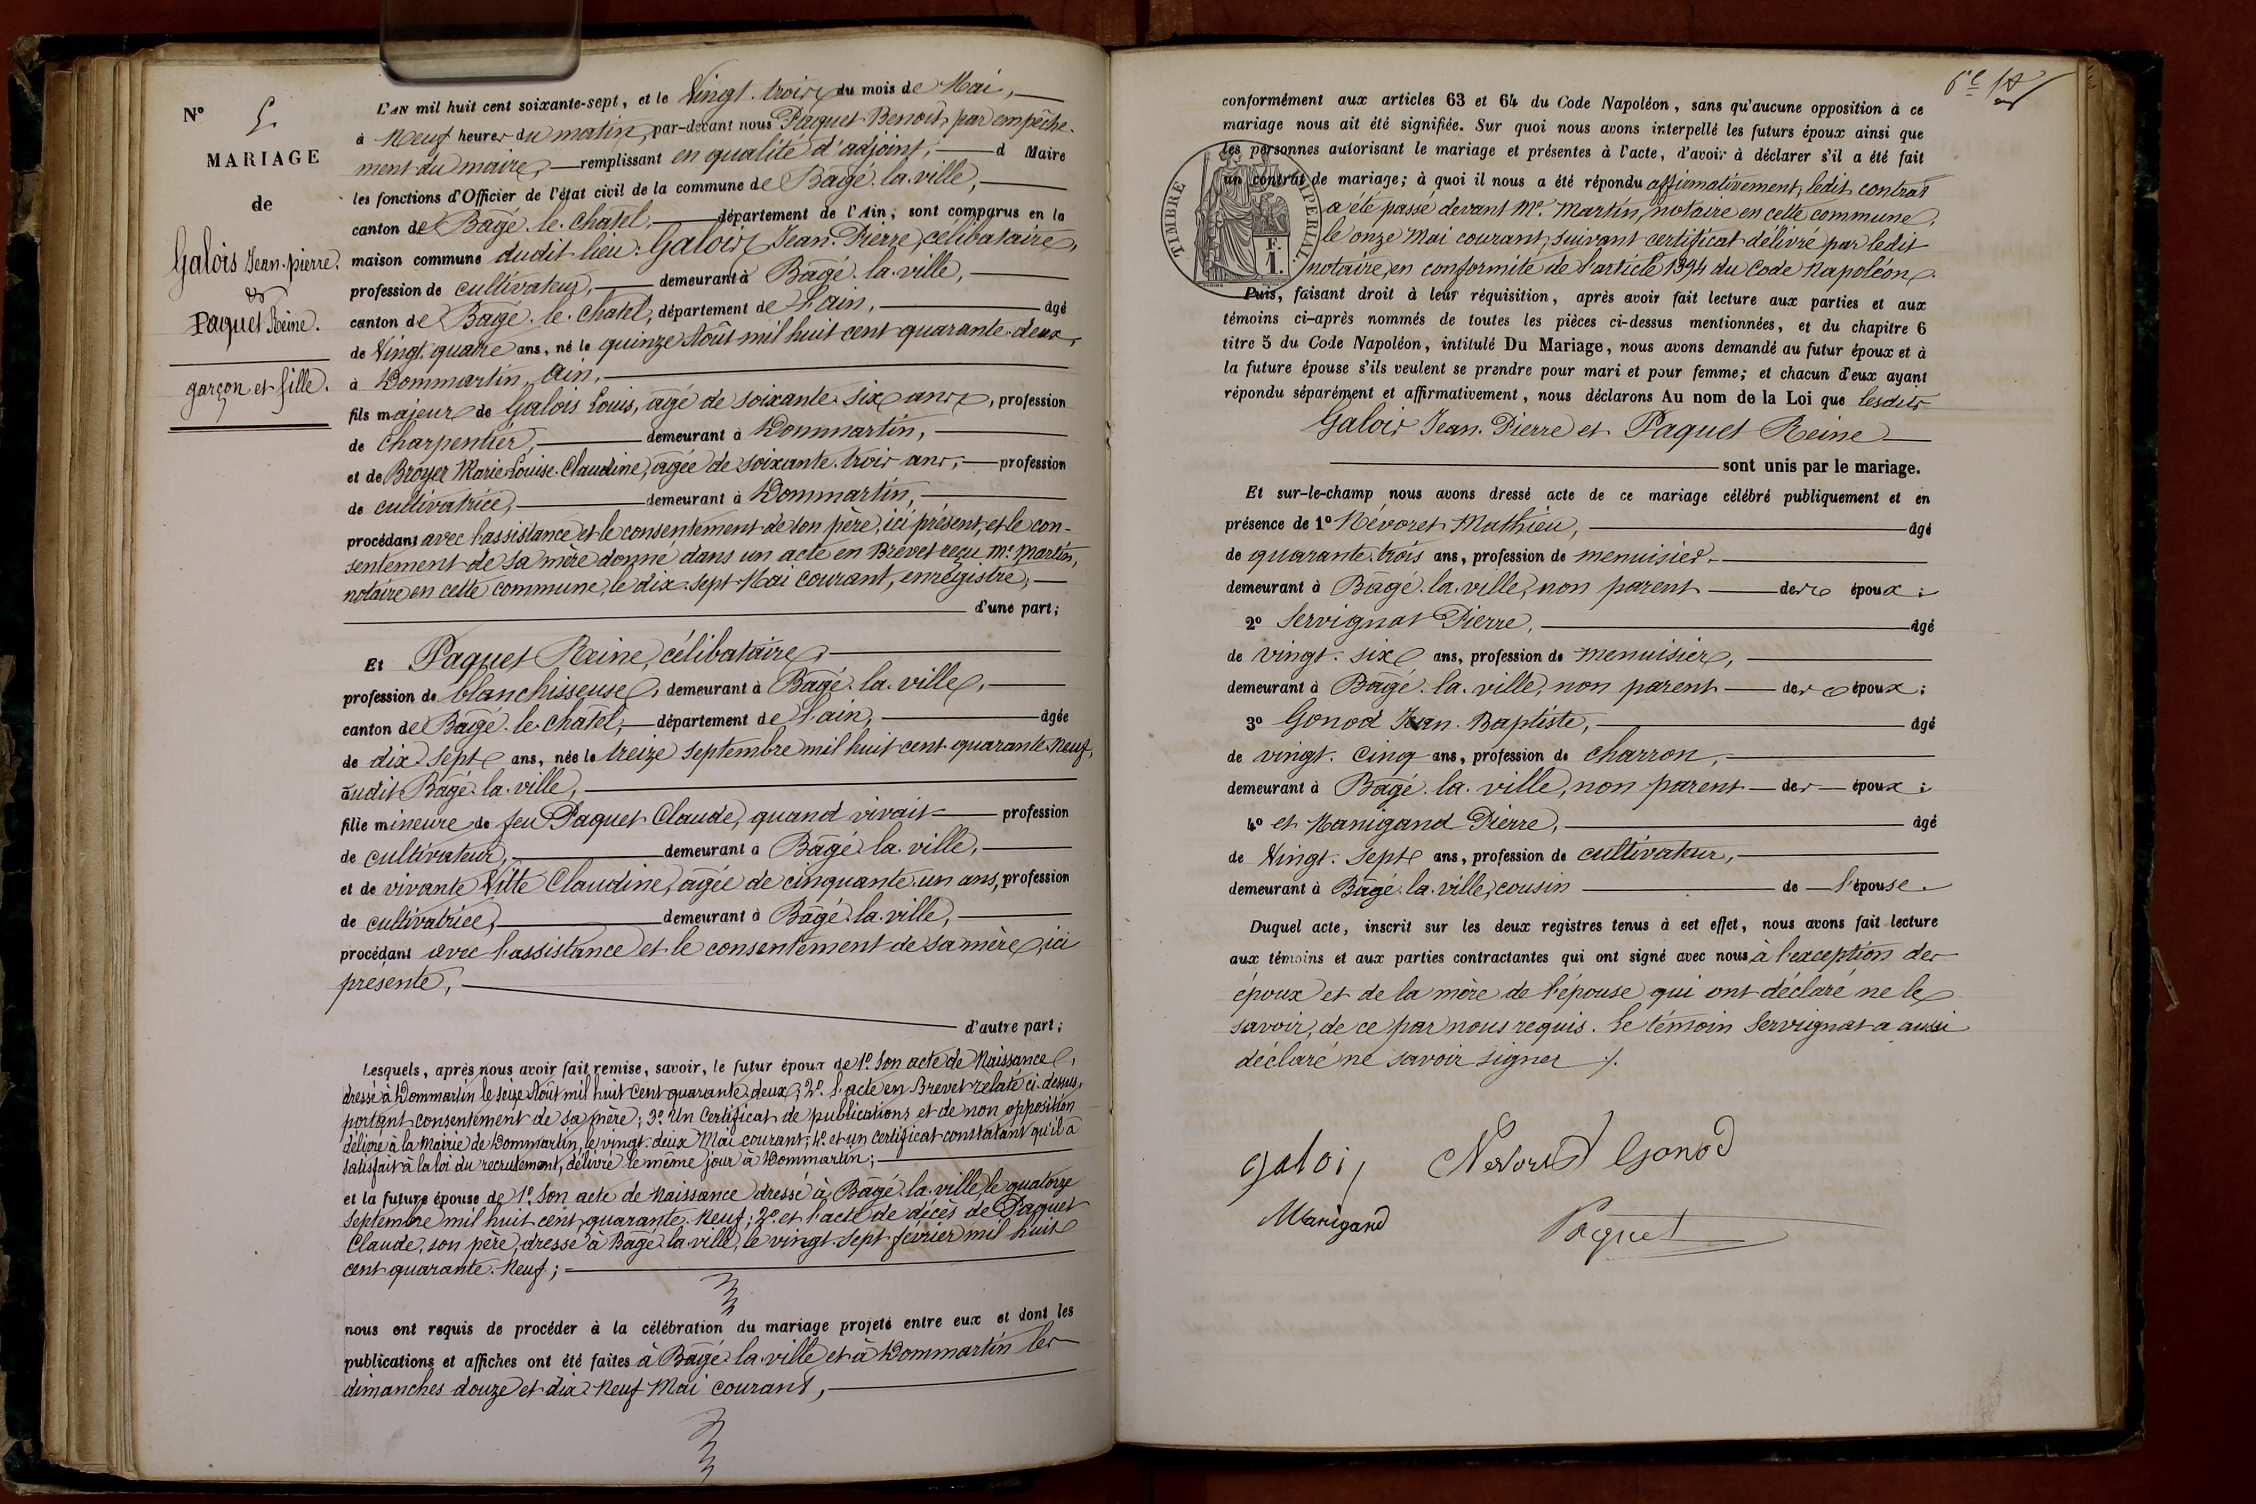 N° 5.
MARIAGE
de
Galois Jean-pierre.
et
Paquet Reine.
garçon et fille.
L'AN mil huit cent soixante-sept, et le Vingt-trois du mois de Mai,
à Neuf heures du matin, par-devant nous Paquet Benoît, par empêche-
ment du maire, remplissant en qualité d'adjoint, d Maire
les fonctions d'Officier de l'état civil de la commune de Bâgé-la-ville,
canton de Bâgé-le-Chatel, département de l'Ain, sont comparus en la
maison commune dudit lieu: Galois Jean-Pierre, célibataire,
profession de cultivateur, demeurant à Bâgé-la-ville,
canton de Bâgé-le-Chatel, département de l'ain, âgé
de Vingt-quatre ans, né le quinze Août mil huit cent quarante-deux,
à Dommartin, Ain,
fils majeur de Galois Louis, âgé de soixante-six ans, profession
de Charpentier, demeurant à Dommartin,
et de Broyer Marie-Louise-Claudine, âgée de soixante-trois ans, profession
de cultivatrice, demeurant à Dommartin,
procédant avec l'assistance et le consentement de son père, ici présent, et le con-
sentement de sa mère donné dans un acte en Brevet reçu Me. Martin,
notaire en cette commune, le dix-sept Mai courant, enregistré,
d'une part;
Et Paquet Reine, célibataire,
profession de blanchisseuse, demeurant à Bâgé-la-ville,
canton de Bâgé-le-chatel, département de l'ain, âgée
de dix-sept ans, née le treize septembre mil huit cent quarante-neuf,
audit Bâgé-la-ville,
fille mineure de feu Paquet Claude, quand vivait profession
de cultivateur, demeurant à Bâgé-la-ville,
et de vivante Vitte Claudine, âgée de cinquante-un ans, profession
de cultivatrice, demeurant à Bâgé-la-ville,
procédant avec l'assistance et le consentement de sa mère, ici
présente,
d'autre part;
Lesquels, après nous avoir fait remise, savoir, le futur époux de 1° Son acte de Naissance,
dressé à Dommartin le seize Août mil huit cent quarante-deux; 2° l'acte en Brevet relaté ci-dessus,
portant consentement de sa mère; 3° Un Certificat de publications et de non opposition
délivré à la Mairie de Dommartin, le vingt-deux Mai courant; 4° et un certificat constatant qu'il a
satisfait à la loi du recrutement, délivré le même jour à Dommartin;
et la future épouse de 1° Son acte de Naissance dressé à Bâgé-la-ville, le quatorze
Septembre mil huit cent quarante-Neuf; 2° et l'acte de décès de Paquet
Claude, son père, dressé à Bâgé-la-ville, le vingt-sept février mil huit
cent quarante-Neuf;
nous ont requis de procéder à la célébration du mariage projeté entre eux et dont les
publications et affiches ont été faites à Bâgé-la-ville et à Dommartin les
dimanches douze et dix-Neuf Mai courant,
conformément aux articles 63 et 64 du Code Napoléon, sans qu'aucune opposition à ce
mariage nous ait été signifiée. Sur quoi nous avons interpellé les futurs époux ainsi que
les personnes autorisant le mariage et présentes à l'acte, d'avoir à déclarer s'il a été fait
un contrat de mariage; à quoi il nous a été répondu affirmativement, ledit contrat
a été passé devant Me. Martin, notaire en cette commune,
le onze Mai courant, suivant certificat délivré par ledit
notaire, en conformité de l'article 1394 du Code Napoléon.
TIMBRE IMPERIAL
F.
1.
Puis, faisant droit à leur réquisition, après avoir fait lecture aux parties et aux
témoins ci-après nommés de toutes les pièces ci-dessus mentionnées, et du chapitre 6
titre 5 du Code Napoléon, intitulé Du Mariage, nous avons demandé au futur époux et à
la future épouse s'ils veulent se prendre pour mari et pour femme; et chacun d'eux ayant
répondu séparément et affirmativement, nous déclarons Au nom de la Loi que lesdits
Galois Jean-Pierre et Paquet Reine
sont unis par le mariage.
Et sur-le-champ nous avons dressé acte de ce mariage célébré publiquement et en
présence de 1° Névoret Mathieu, âgé
de quarante-trois ans, profession de menuisier,
demeurant à Bâgé-la-ville, non parent des époux;
2° Servignat Pierre, âgé
de vingt-six ans, profession de menuisier,
demeurant à Bâgé-la-ville, non parent des époux;
3° Gonod Jean-Baptiste, âgé
de vingt-cinq ans, profession de charron,
demeurant à Bâgé-la-ville, non parent des époux;
4° et Manigand Pierre, âgé
de Vingt-sept ans, profession de cultivateur,
demeurant à Bâgé-la-ville, cousin de l'épouse.
Duquel acte, inscrit sur les deux registres tenus à cet effet, nous avons fait lecture
aux témoins et aux parties contractantes qui ont signé avec nous à l'exception des
époux et de la mère de l'épouse qui ont déclaré ne le
savoir, de ce par nous requis. Le témoin Servignat a aussi
déclaré ne savoir signer.
galois Nevoret Gonod
Manigand Paquet